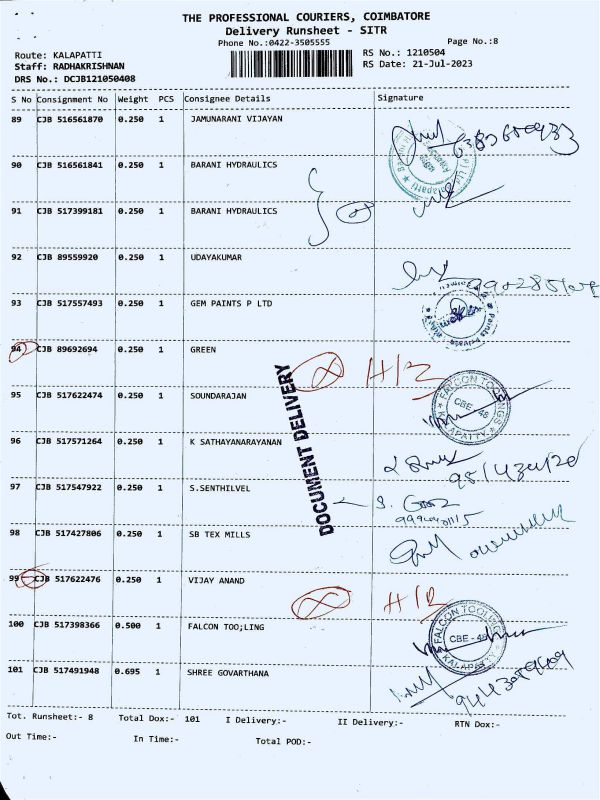 THE PROFESSIONAL COURIERS, COIMBATORE
Delivery Runsheet - SITR
Phone No.:0422-3505555 Page No.:8
Route: KALAPATTI RS No.: 1210504
Staff: RADHAKRISHNAN RS Date: 21-Jul-2023
DRS No.: DCJB121050408
S No Consignment No Weight PCS Consignee Details Signature
89 CJB 516561870 0.250 1 JAMUNARANI VIJAYAN
90 CJB 516561841 0.250 1 BARANI HYDRAULICS
91 CJB 517399181 0.250 1 BARANI HYDRAULICS
92 CJB 89559920 0.250 1 UDAYAKUMAR
93 CJB 517557493 0.250 1 GEM PAINTS P LTD
94 CJB 89692694 0.250 1 GREEN
95 CJB 517622474 0.250 1 SOUNDARAJAN
FALCON TOOLINGS
CBE - 48
KALAPATTY
96 CJB 517571264 0.250 1 K SATHAYANARAYANAN
DOCUMENT DELIVERY
97 CJB 517547922 0.250 1 S.SENTHILVEL
98 CJB 517427806 0.250 1 SB TEX MILLS
99 CJB 517622476 0.250 1 VIJAY ANAND
100 CJB 517398366 0.500 1 FALCON TOO;LING
FALCON TOOLINGS
CBE - 48
KALAPATTY
101 CJB 517491948 0.695 1 SHREE GOVARTHANA
Tot. Runsheet:- 8 Total Dox:- 101 I Delivery:- II Delivery:- RTN Dox:-
Out Time:- In Time:- Total POD:-